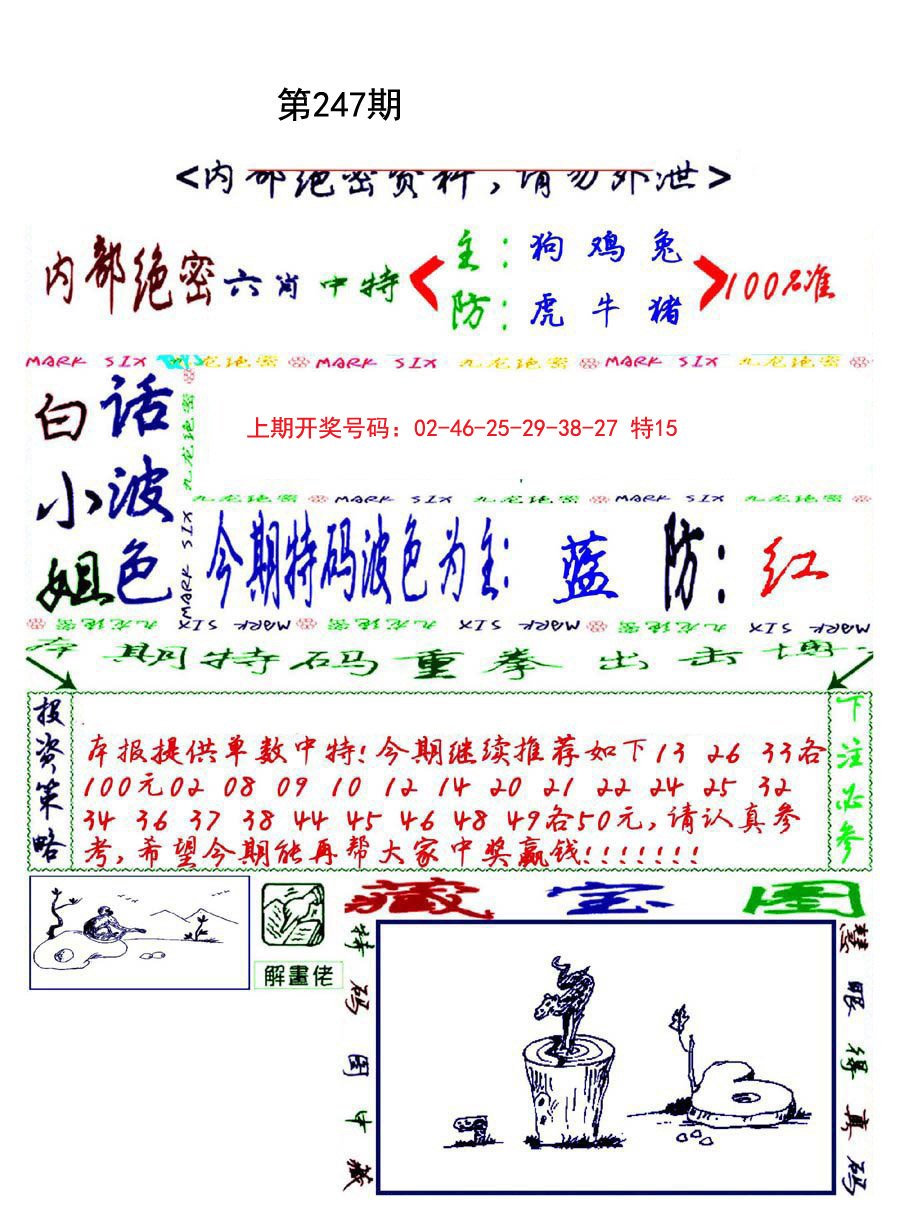 第247期
<内部绝密资料,请勿外泄>
内部绝密六肖中特
主:狗 鸡 兔
防:虎 牛 猪
100%准
MARK SIX 九龙绝密 MARK SIX 九龙绝密 MARK SIX 九龙绝密
白话
小波
姐色
九龙绝密
MARK SIX
上期开奖号码：02-46-25-29-38-27 特15
九龙绝密 MARK SIX 九龙绝密 MARK SIX 九龙绝密
今期特码波色为主: 蓝 防: 红
九龙绝密 MARK SIX 九龙绝密 MARK SIX 九龙绝密 MARK SIX
本期特码重拳出击
投资策略
本报提供单数中特!今期继续推荐如下13 26 33各
100元02 08 09 10 12 14 20 21 22 24 25 32
34 36 37 38 44 45 46 48 49各50元,请认真参
考,希望今期能再帮大家中奖赢钱!!!!!!!
下注必参
藏宝图
解畫佬
特码图中藏
慧眼得真码